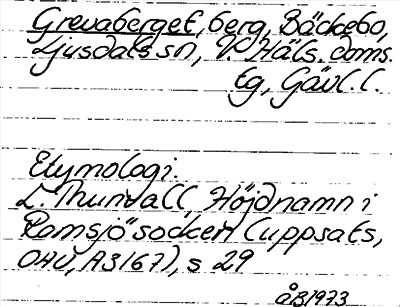 Grevaberget, berg, Bäckebo,
Ljusdals sn, V. Häls. doms.
tg, Gävl. l.
Etymologi.
L. Thundall, Höjdnamn i
Ramsjö socken (uppsats,
OAU, A3167), s 29
ÅB 1973